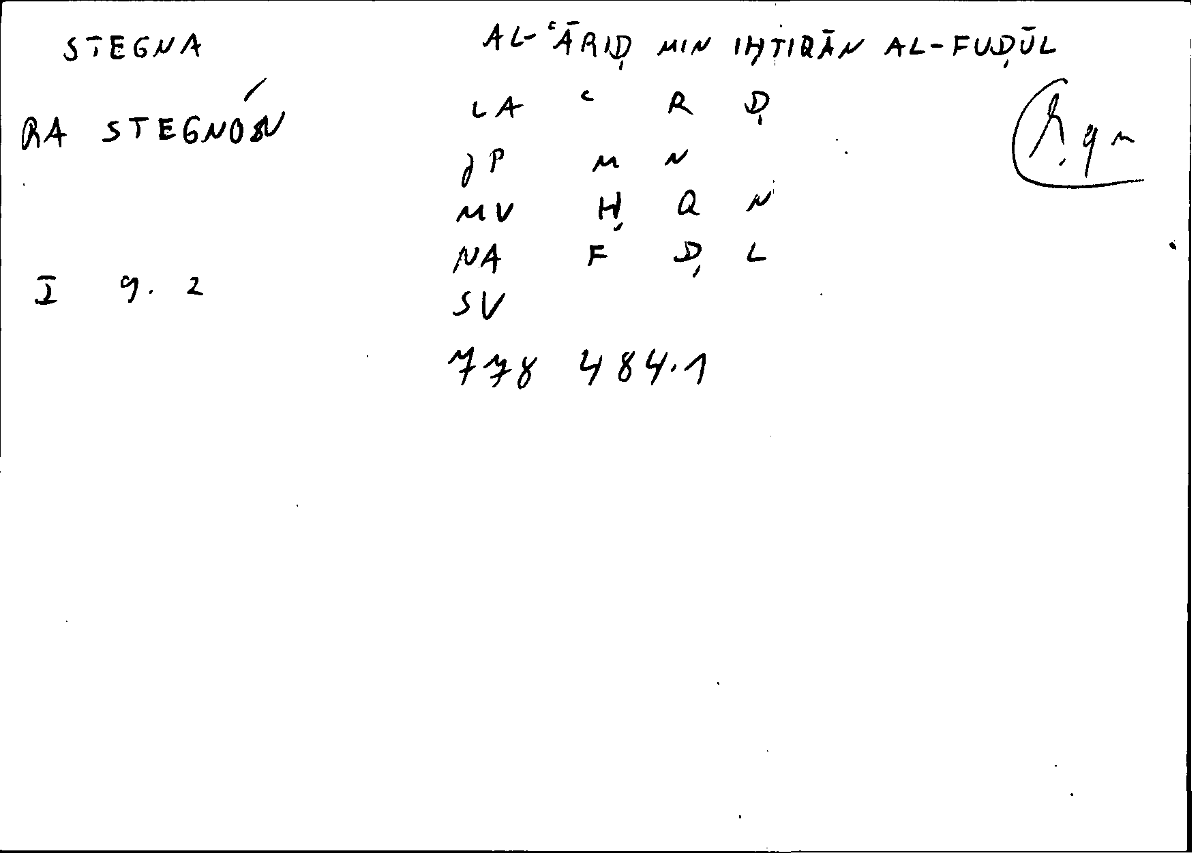 STEGNA AL-ʿĀRIḌ MIN IḤTIQĀN AL-FUḌŪL
LA ʿ R Ḍ
RA STEGNÓN
JP M N
MV Ḥ Q N
NA F Ḍ L
I 9. 2
SV
778 484.1